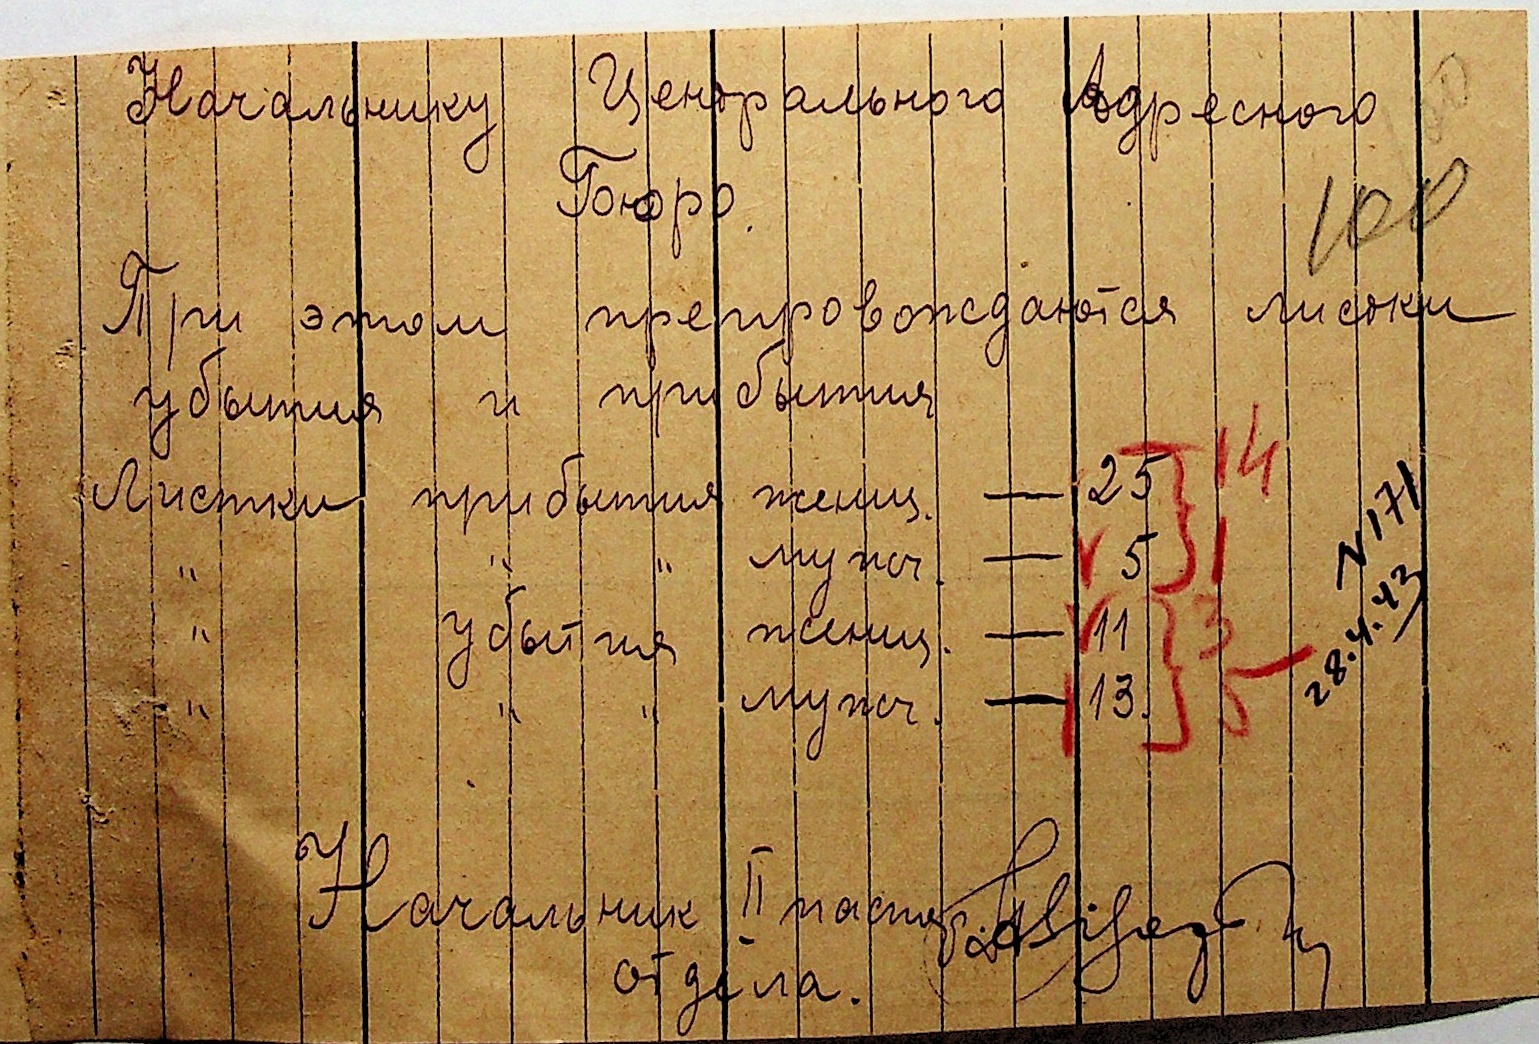 Начальнику Центрального Адресного
Бюро.
100
При этом препровождаются листки
убытия и прибытия
Листки прибытия женщ. — 25
" " " мужч. — 5
" убытия женщ. — 11
" " " мужч. — 13.
14
1
3
5
N 171
28.4.43
Начальник II паспорт
отдела.